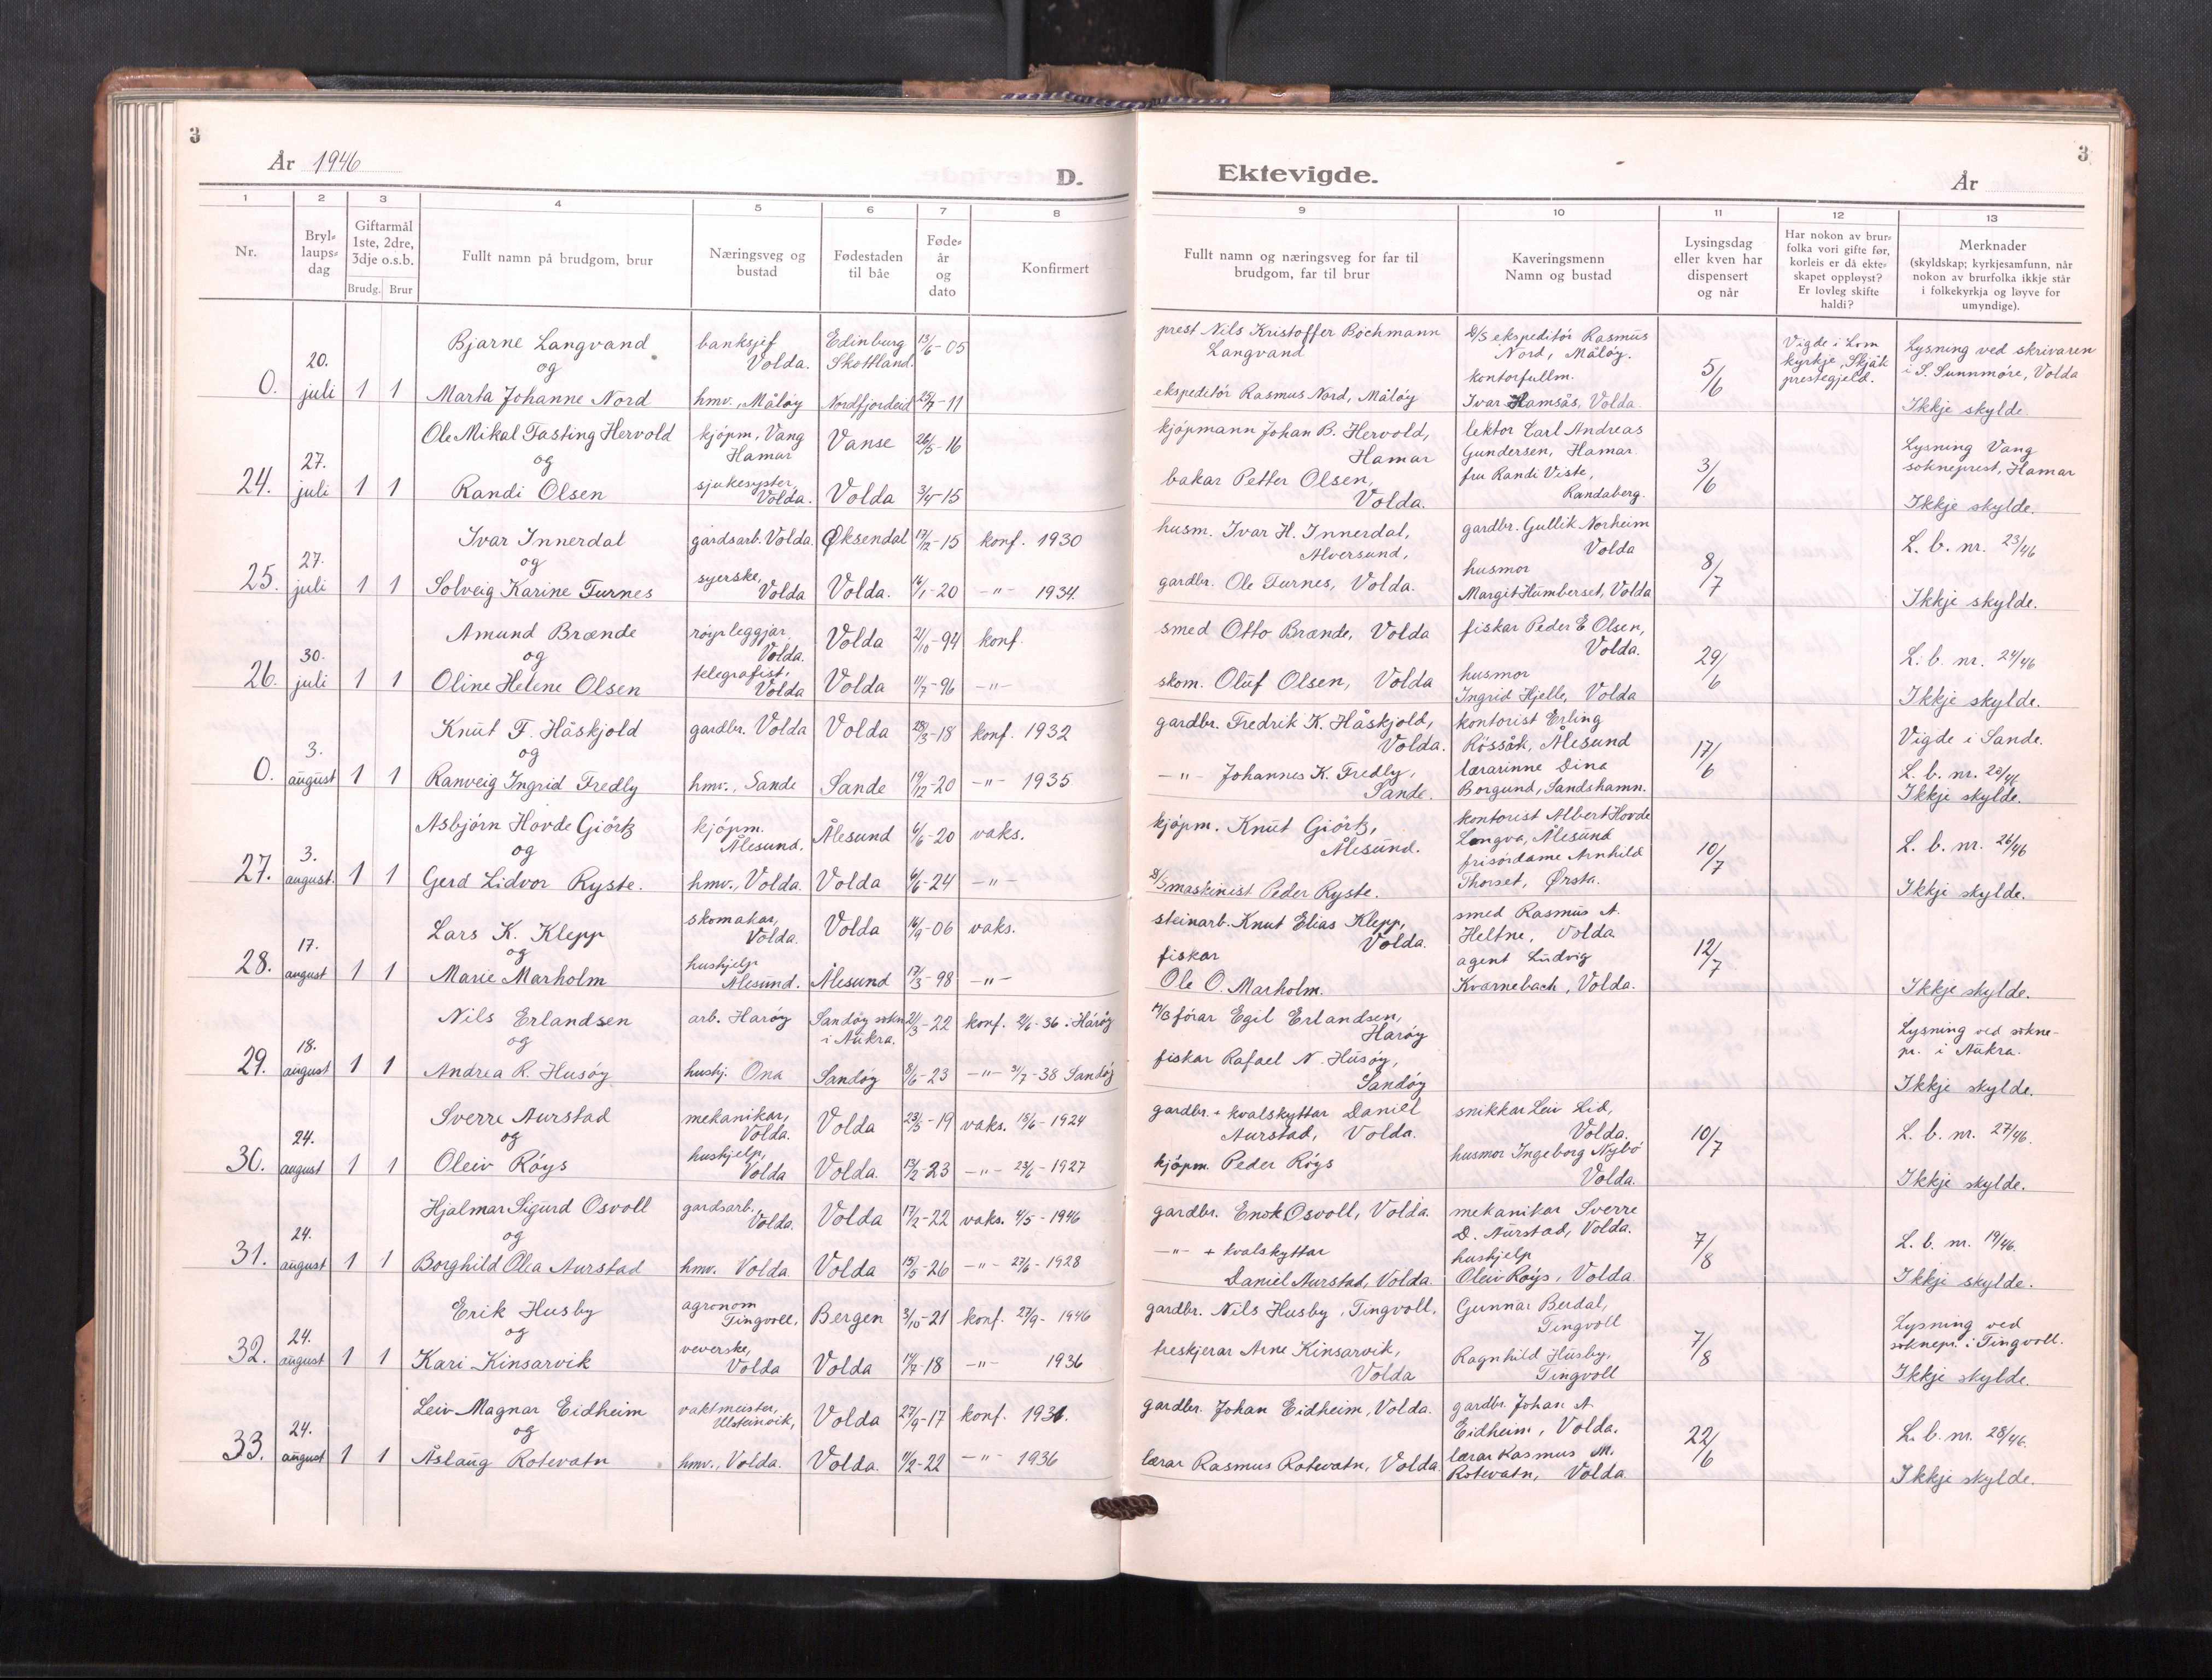 3
År 1946
D.
Ektevigde.
År
3
1 2 3 4 5 6 7 8 9 10 11 12 13
Nr.
Bryllaupsdag
Giftarmål 1ste, 2dre, 3dje o.s.b.
Brudg. Brur
Fullt namn på brudgom, brur
Næringsveg og bustad
Fødestaden til båe
Fødeår og dato
Konfirmert
Fullt namn og næringsveg for far til brudgom, far til brur
Kaveringsmenn Namn og bustad
Lysingsdag eller kven har dispensert og når
Har nokon av brurfolka vori gifte før, korleis er då ekteskapet oppløyst? Er lovleg skifte haldi?
Merknader (skyldskap; kyrkjesamfunn, når nokon av brurfolka ikkje står i folkekyrkja og løyve for umyndige).
0. 20. juli 1 1
Bjarne Langvand banksjef Volda. Edinburg Skottland. 13/6-05
og
Marta Johanne Nord hmv., Måløy Nordfjordeid 25/7-11
prest Nils Kristoffer Bochmann Langvand
ekspeditør Rasmus Nord, Måløy
D/S ekspeditør Rasmus Nord, Måløy.
kontorfullm. Ivar Hamsås, Volda.
5/6
Vigde i Lom kyrkje, Skjåk prestegjeld.
Lysning ved skrivaren i S. Sunnmøre, Volda
Ikkje skylde
24. 27. juli 1 1
Ole Mikal Tasting Hervold kjøpm, Vang Hamar Vanse 26/5-16
og
Randi Olsen sjukesyster, Volda. Volda 3/4-15
kjøpmann Johan B. Hervold, Hamar
bakar Petter Olsen, Volda.
lektor Carl Andreas Gundersen, Hamar.
fru Randi Viste, Randaberg.
3/6
Lysning Vang sokneprest, Hamar
Ikkje skylde.
25. 27. juli 1 1
Ivar Innerdal gardsarb. Volda. Øksendal 17/12-15 konf. 1930
og
Solveig Karine Furnes syerske, Volda Volda. 16/1-20 -"- 1934.
husm. Ivar H. Innerdal, Alversund,
gardbr. Ole Furnes, Volda.
gardbr. Gullik Norheim Volda
husmor Margit Humberset, Volda
8/7
L. b. nr. 23/46
Ikkje skylde.
26. 30. juli 1 1
Amund Brænde røyrleggjar Volda. Volda 21/10-94 konf.
og
Oline Helene Olsen telegrafist, Volda Volda 11/7-96 -"-
smed Otto Brænde, Volda
skom. Oluf Olsen, Volda
fiskar Peder E Olsen, Volda.
husmor Ingrid Hjelle, Volda
29/6
L. b. nr. 24/46
Ikkje skylde.
0. 3. august 1 1
Knut F. Håskjold gardbr. Volda Volda 28/3-18 konf. 1932
og
Ranveig Ingrid Fredly hmv., Sande Sande 19/12-20 -"- 1935
gardbr. Fredrik K. Håskjold, Volda.
-"- Johannes K. Fredly, Sande.
kontorist Erling Røssåk, Ålesund
lærarinne Dina Borgund, Sandshamn.
17/6
Vigde i Sande.
L. b. nr. 20/46
Ikkje skylde.
27. 3. august. 1 1
Asbjørn Hovde Giørtz kjøpm. Ålesund. Ålesund 6/6-20 vaks.
og
Gerd Lidvor Ryste. hmv., Volda. Volda 6/6-24 -"-
kjøpm. Knut Giørtz, Ålesund.
D/S maskinist Peder Ryste.
kontorist Albert Hovde Longva, Ålesund
frisørdame Arnhild Thorset, Ørsta.
10/7
L. b. nr. 26/46
Ikkje skylde.
28. 17. august 1 1
Lars K. Klepp skomakar, Volda. Volda 16/9-06 vaks.
og
Marie Marholm hushjelp Ålesund. Ålesund 17/3-98 -"-
steinarb. Knut Elias Klepp, Volda.
fiskar Ole O. Marholm.
smed Rasmus A. Heltne, Volda
agent Ludvig Kvarnebach, Volda.
12/7
Ikkje skylde.
29. 18. august 1 1
Nils Erlandsen arb. Harøy Sandøy sokn i Aukra. 21/3-22 konf. 21/6-36 i Harøy
og
Andrea R. Husøy hushj. Ona Sandøy 8/6-23 -"- 31/7-38 Sandøy
M/B førar Egil Erlandsen, Harøy
fiskar Rafael N. Husøy, Sandøy
Lysning ved soknepr. i Aukra.
Ikkje skylde.
30. 24. august 1 1
Sverre Aurstad mekanikar, Volda. Volda 23/5-19 vaks. 18/6-1924
og
Oleiv Røys hushjelp, Volda Volda. 13/2-23 -"- 23/6-1927
gardbr. + kvalskyttar Daniel Aurstad, Volda.
kjøpm. Peder Røys
snikkar Leiv Lid, Volda.
husmor Ingeborg Nybø Volda.
10/7
L. b. nr. 27/46.
Ikkje skylde.
31. 24. august 1 1
Hjalmar Sigurd Osvoll gardsarb. Volda. Volda 17/2-22 vaks. 4/5-1946
og
Borghild Olea Aurstad hmv. Volda. Volda 15/5-26 -"- 27/6-1928
gardbr. Enok Osvoll, Volda.
-"- + kvalskyttar Daniel Aurstad, Volda.
mekanikar Sverre D. Aurstad, Volda.
hushjelp Oleiv Røys, Volda
7/8
L. b. nr. 19/46.
Ikkje skylde.
32. 24. august 1 1
Erik Husby agronom Tingvoll, Bergen 3/10-21 konf. 27/9-1946
og
Kari Kinsarvik veverske, Volda Volda 17/7-18 -"- 1936
gardbr. Nils Husby, Tingvoll.
treskjerar Arne Kinsarvik, Volda
Gunnar Berdal, Tingvoll
Ragnhild Husby, Tingvoll
7/8
Lysning ved soknepr. i Tingvoll.
Ikkje skylde.
33. 24. august 1 1
Leiv Magnar Eidheim vaktmeister, Ulsteinvik, Volda 27/9-17 konf. 1931.
og
Åslaug Rotevatn hmv., Volda. Volda. 11/2-22 -"- 1936
gardbr. Johan Eidheim, Volda.
lærar Rasmus Rotevatn, Volda.
gardbr. Johan A. Eidheim, Volda.
lærar Rasmus M. Rotevatn, Volda
22/6
L. b. nr. 28/46.
Ikkje skylde.